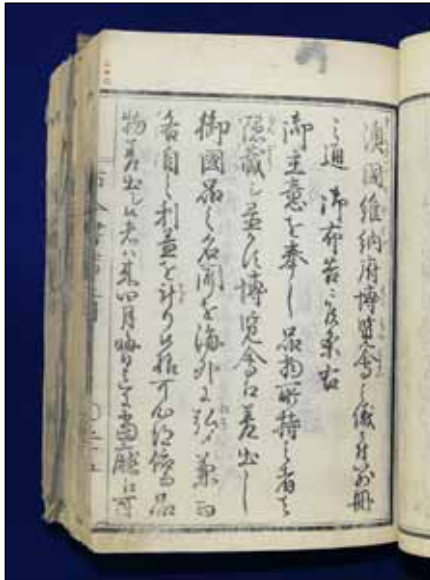 澳國維納府博覧會之儀ニ付別冊
之通 御布告ニ条右
御主意を奉し品物所持之者ハ
隠蔵博覧會江差出し
御國品之名聞を海外ニ弘め兼而
各自之利益を計り候様可心得品
物差出し候者ハ来四月晦日迄ニ當廳江可